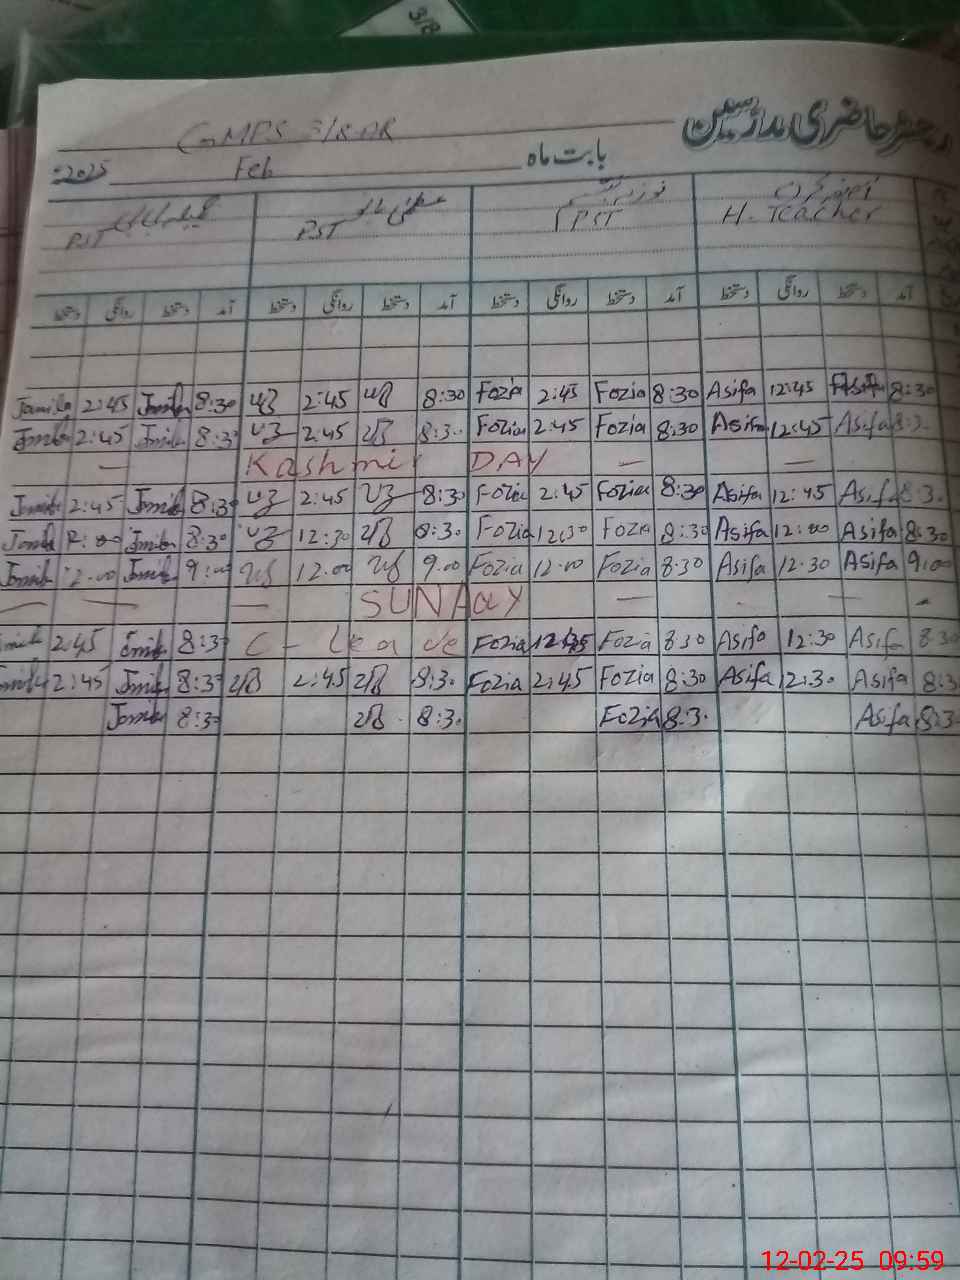 3/8
رجسٹر حاضری مدارسین
GMPS 3/8-AR
2025 Feb بابت ماہ
H-Teacher PST PST PST
آمد دستخط روانگی دستخط آمد دستخط روانگی دستخط آمد دستخط روانگی دستخط آمد دستخط روانگی دستخط
Jamila 2:45 Jmila 8:30 2:45 8:30 Fozia 2:45 Fozia 8:30 Asifa 12:45 Asifa 8:30
Jmila 2:45 Jmila 8:3 2:45 8:3. Fozia 2:45 Fozia 8:30 Asifa 12:45 Asifa 8:3.
— Kashmir DAY — —
Jmila 2:45 Jmila 8:30 2:45 8:30 Fozia 2:45 Fozia 8:30 Asifa 12:45 Asifa 8:3.
Jmila Jmila 8:30 12:30 8:3. Fozia 12:30 Fozia 8:30 Asifa 12:00 Asifa 8:30
Jmila 12:00 Jmila 9:00 12.00 9.00 Fozia 12:00 Fozia 8:30 Asifa 12.30 Asifa 9:00
— — — SUNDAY — — — -
Jmila 2:45 Jmila 8:3 C - Leave Fozia Fozia 8:30 Asifa 12:30 Asifa 8:30
Jmila 2:45 Jmila 8:3 2:45 8:3. Fozia 2:45 Fozia 8:30 Asifa 12:30 Asifa 8:3
Jmila 8:3 8:3. Fozia 8:3. Asifa 8:3
12-02-25 09:59